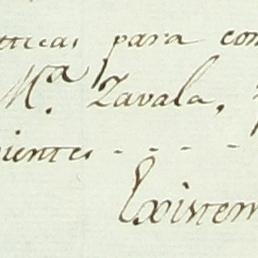 ticas para com
M.ª Zavala,
cientes - - - -
Existen